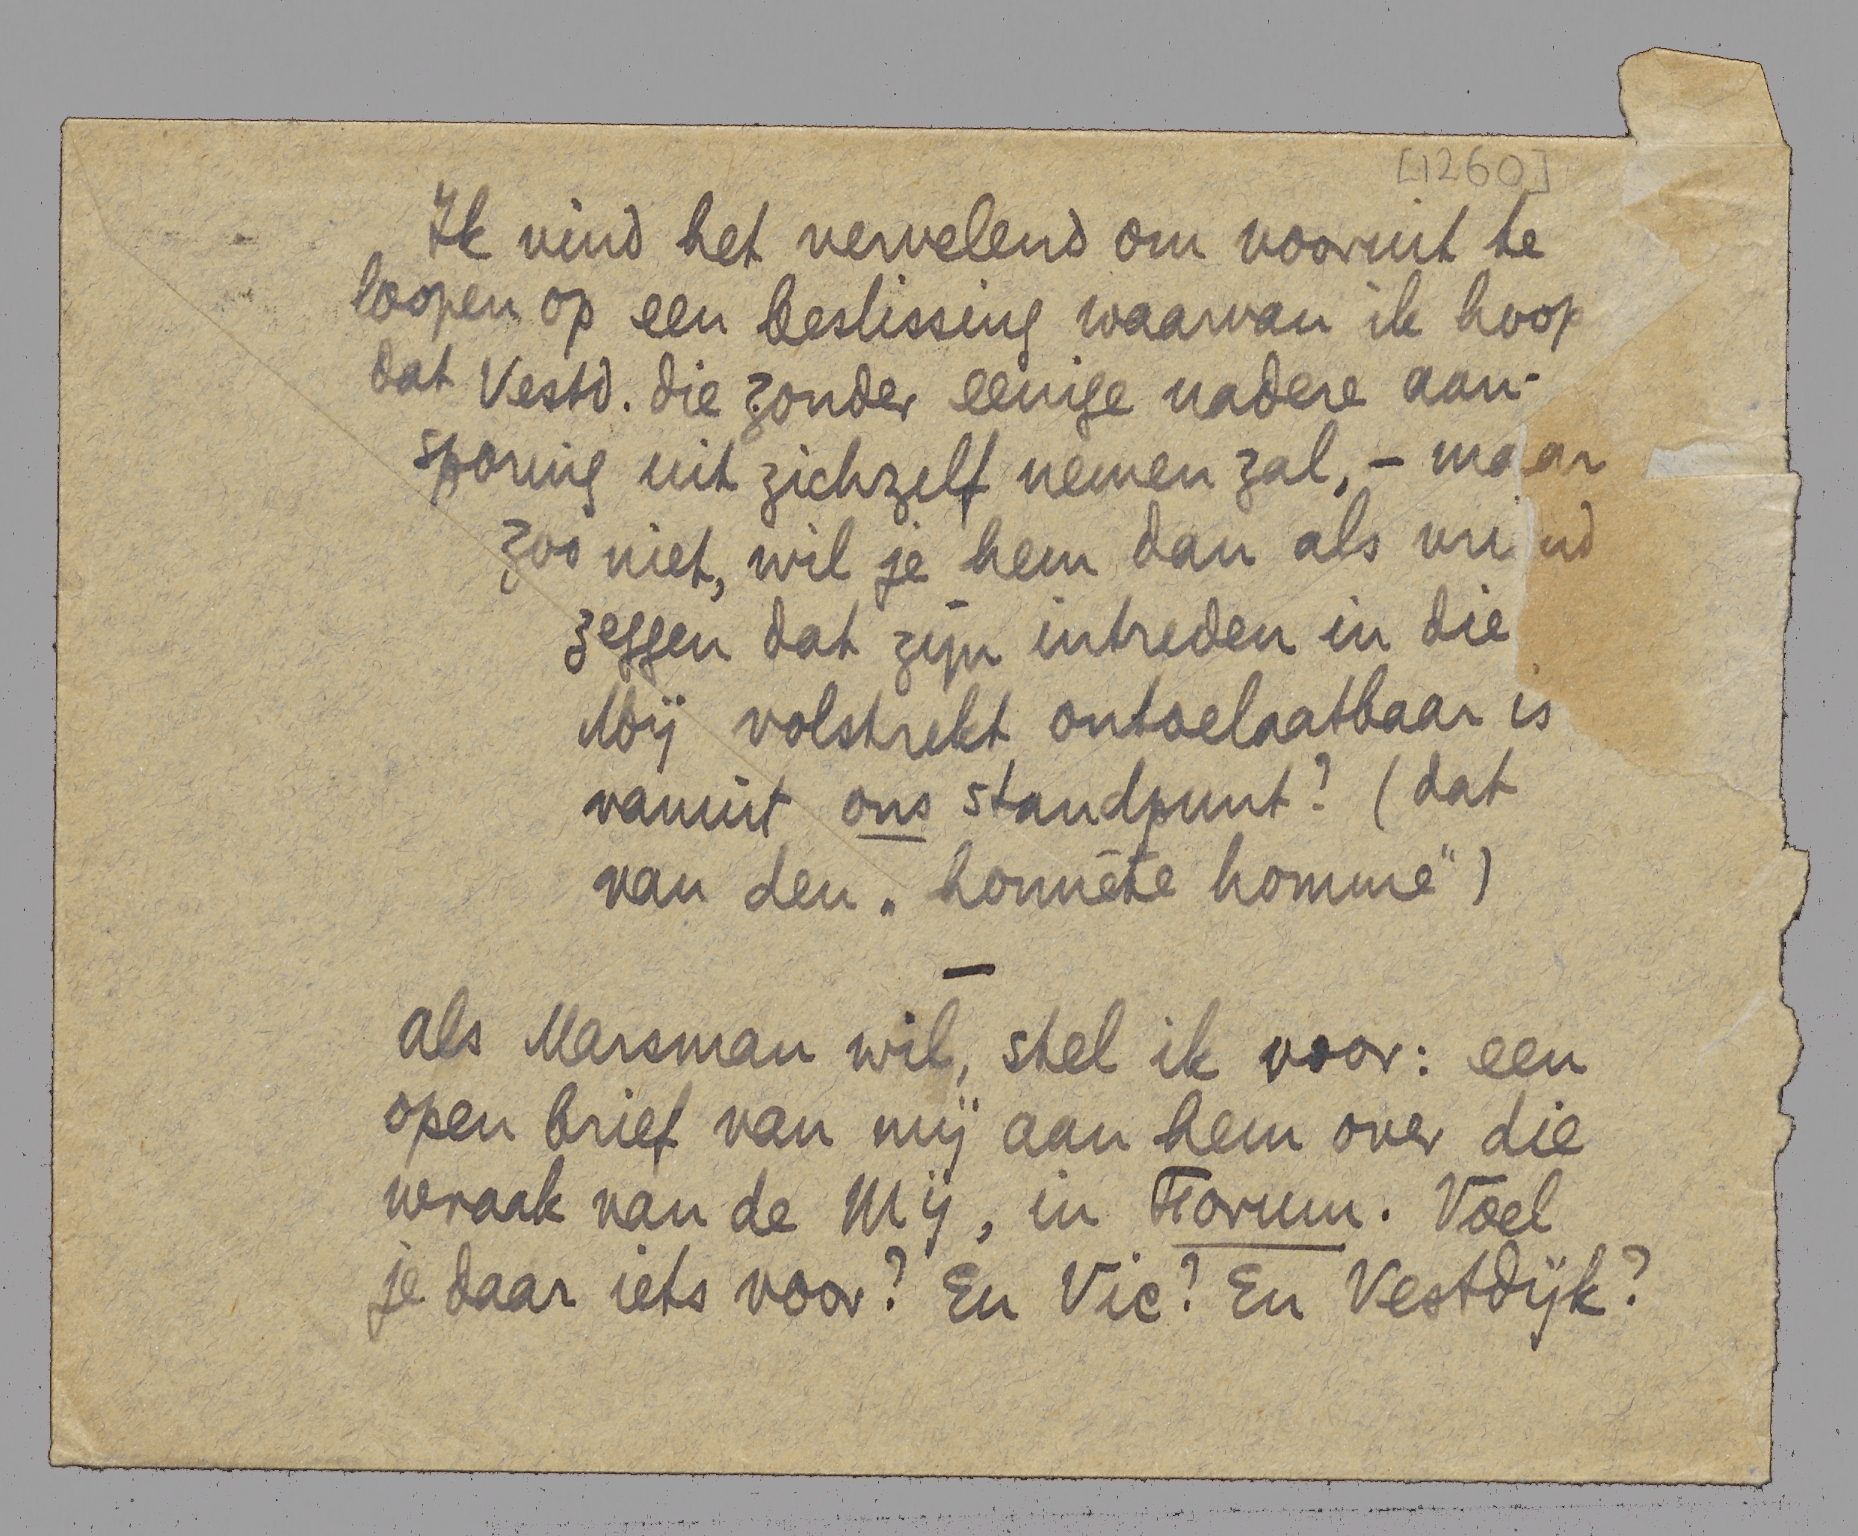 [1260]
Ik vind het vervelend om vooruit te
loopen op een beslissing waarvan ik hoop
dat Vestd. die zonder eenige nadere aan-
sporing uit zichzelf nemen zal, – maar
zoo niet, wil je hem dan als vriend
zeggen dat zijn intreden in die
Mij volstrekt ontoelaatbaar is
vanuit ons standpunt? (dat
van den „honnête homme")
—
als Marsman wil, stel ik voor: een
open brief van mij aan hem over die
wraak van de Mij, in Forum. Voel
je daar iets voor? En Vic? En Vestdijk?